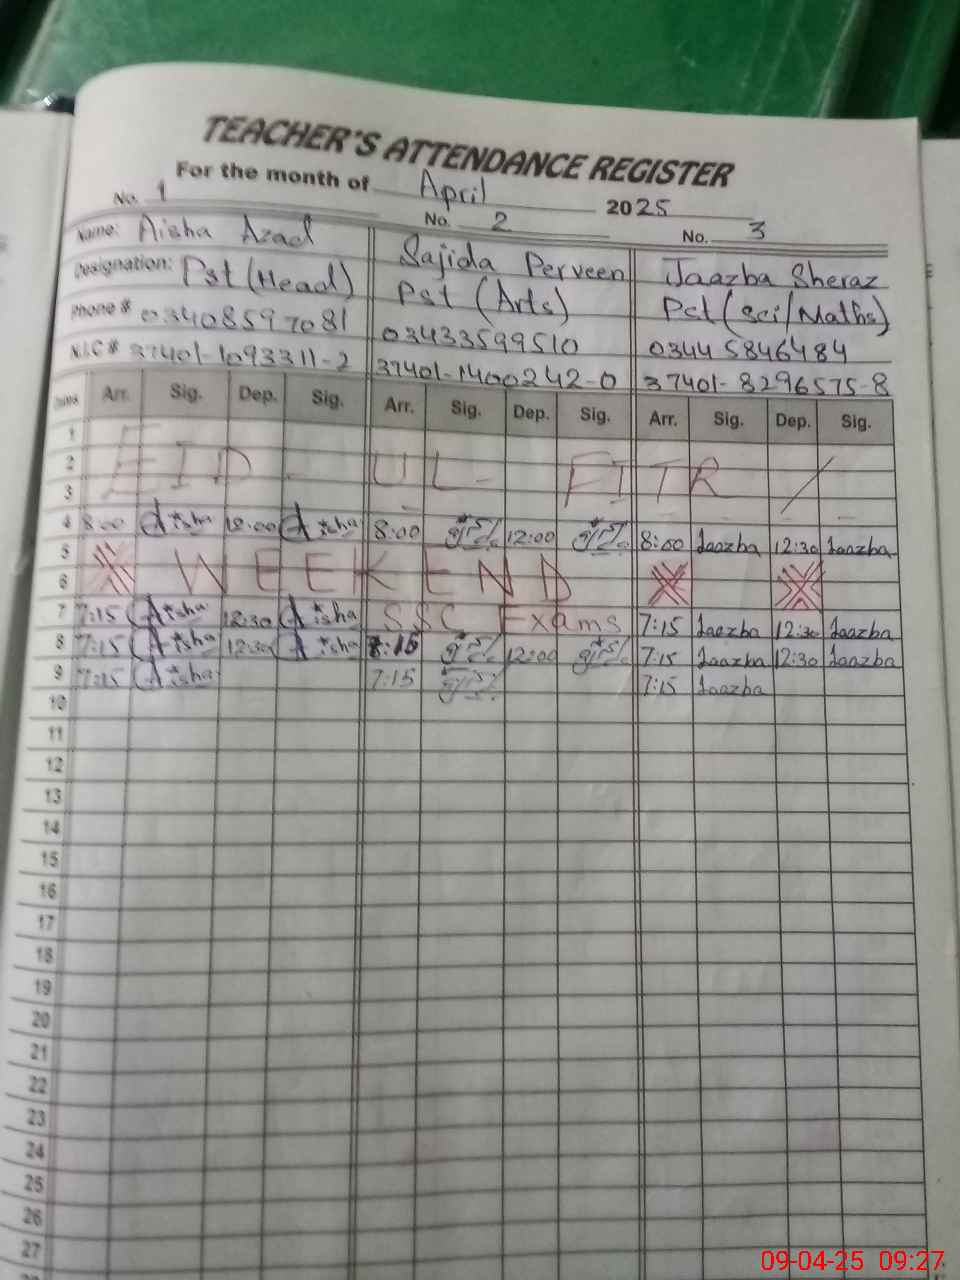 TEACHER'S ATTENDANCE REGISTER
For the month of April 2025
No. 1 No. 2 No. 3
Name: Aisha Azad Sajida Perveen Jaazba Sheraz
Designation: Pst (Head) Pst (Arts) Pst (Sci/Maths)
Phone # 03408597081 03433599510 03445846484
N.I.C # 37401-1093311-2 37401-1400242-0 37401-8296575-8
Dates Arr. Sig. Dep. Sig. Arr. Sig. Dep. Sig. Arr. Sig. Dep. Sig.
1
2 EID-UL-FITR /
3
4 8:00 Aisha 12:00 Aisha 8:00 12:00 8:00 Jaazba 12:30 Jaazba
5 WEEKEND
6
7 7:15 Aisha 12:30 Aisha SSC Exams 7:15 Jaazba 12:30 Jaazba
8 7:15 Aisha 12:30 Aisha 8:15 12:00 7:15 Jaazba 12:30 Jaazba
9 7:15 Aisha 7:15 7:15 Jaazba
10
11
12
13
14
15
16
17
18
19
20
21
22
23
24
25
26
27
09-04-25 09:27